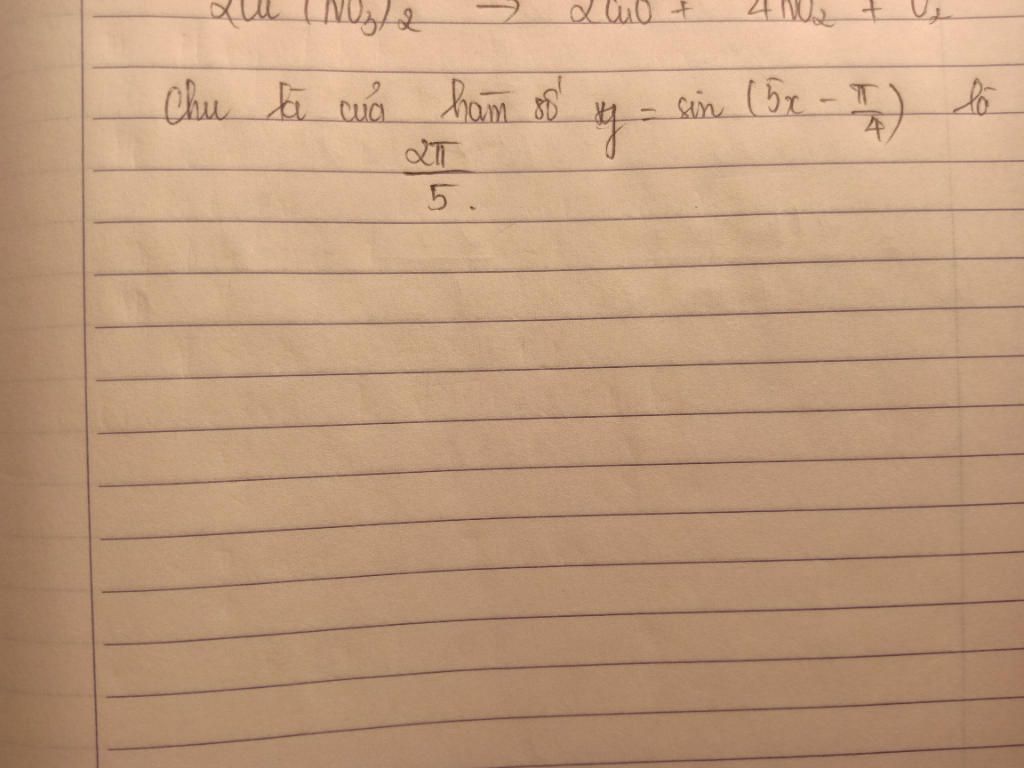 2Cu(NO₃)₂ → 2CuO + 4NO₂ + O₂
Chu kì của hàm số y = sin (5x - π/4) là
2π/5.